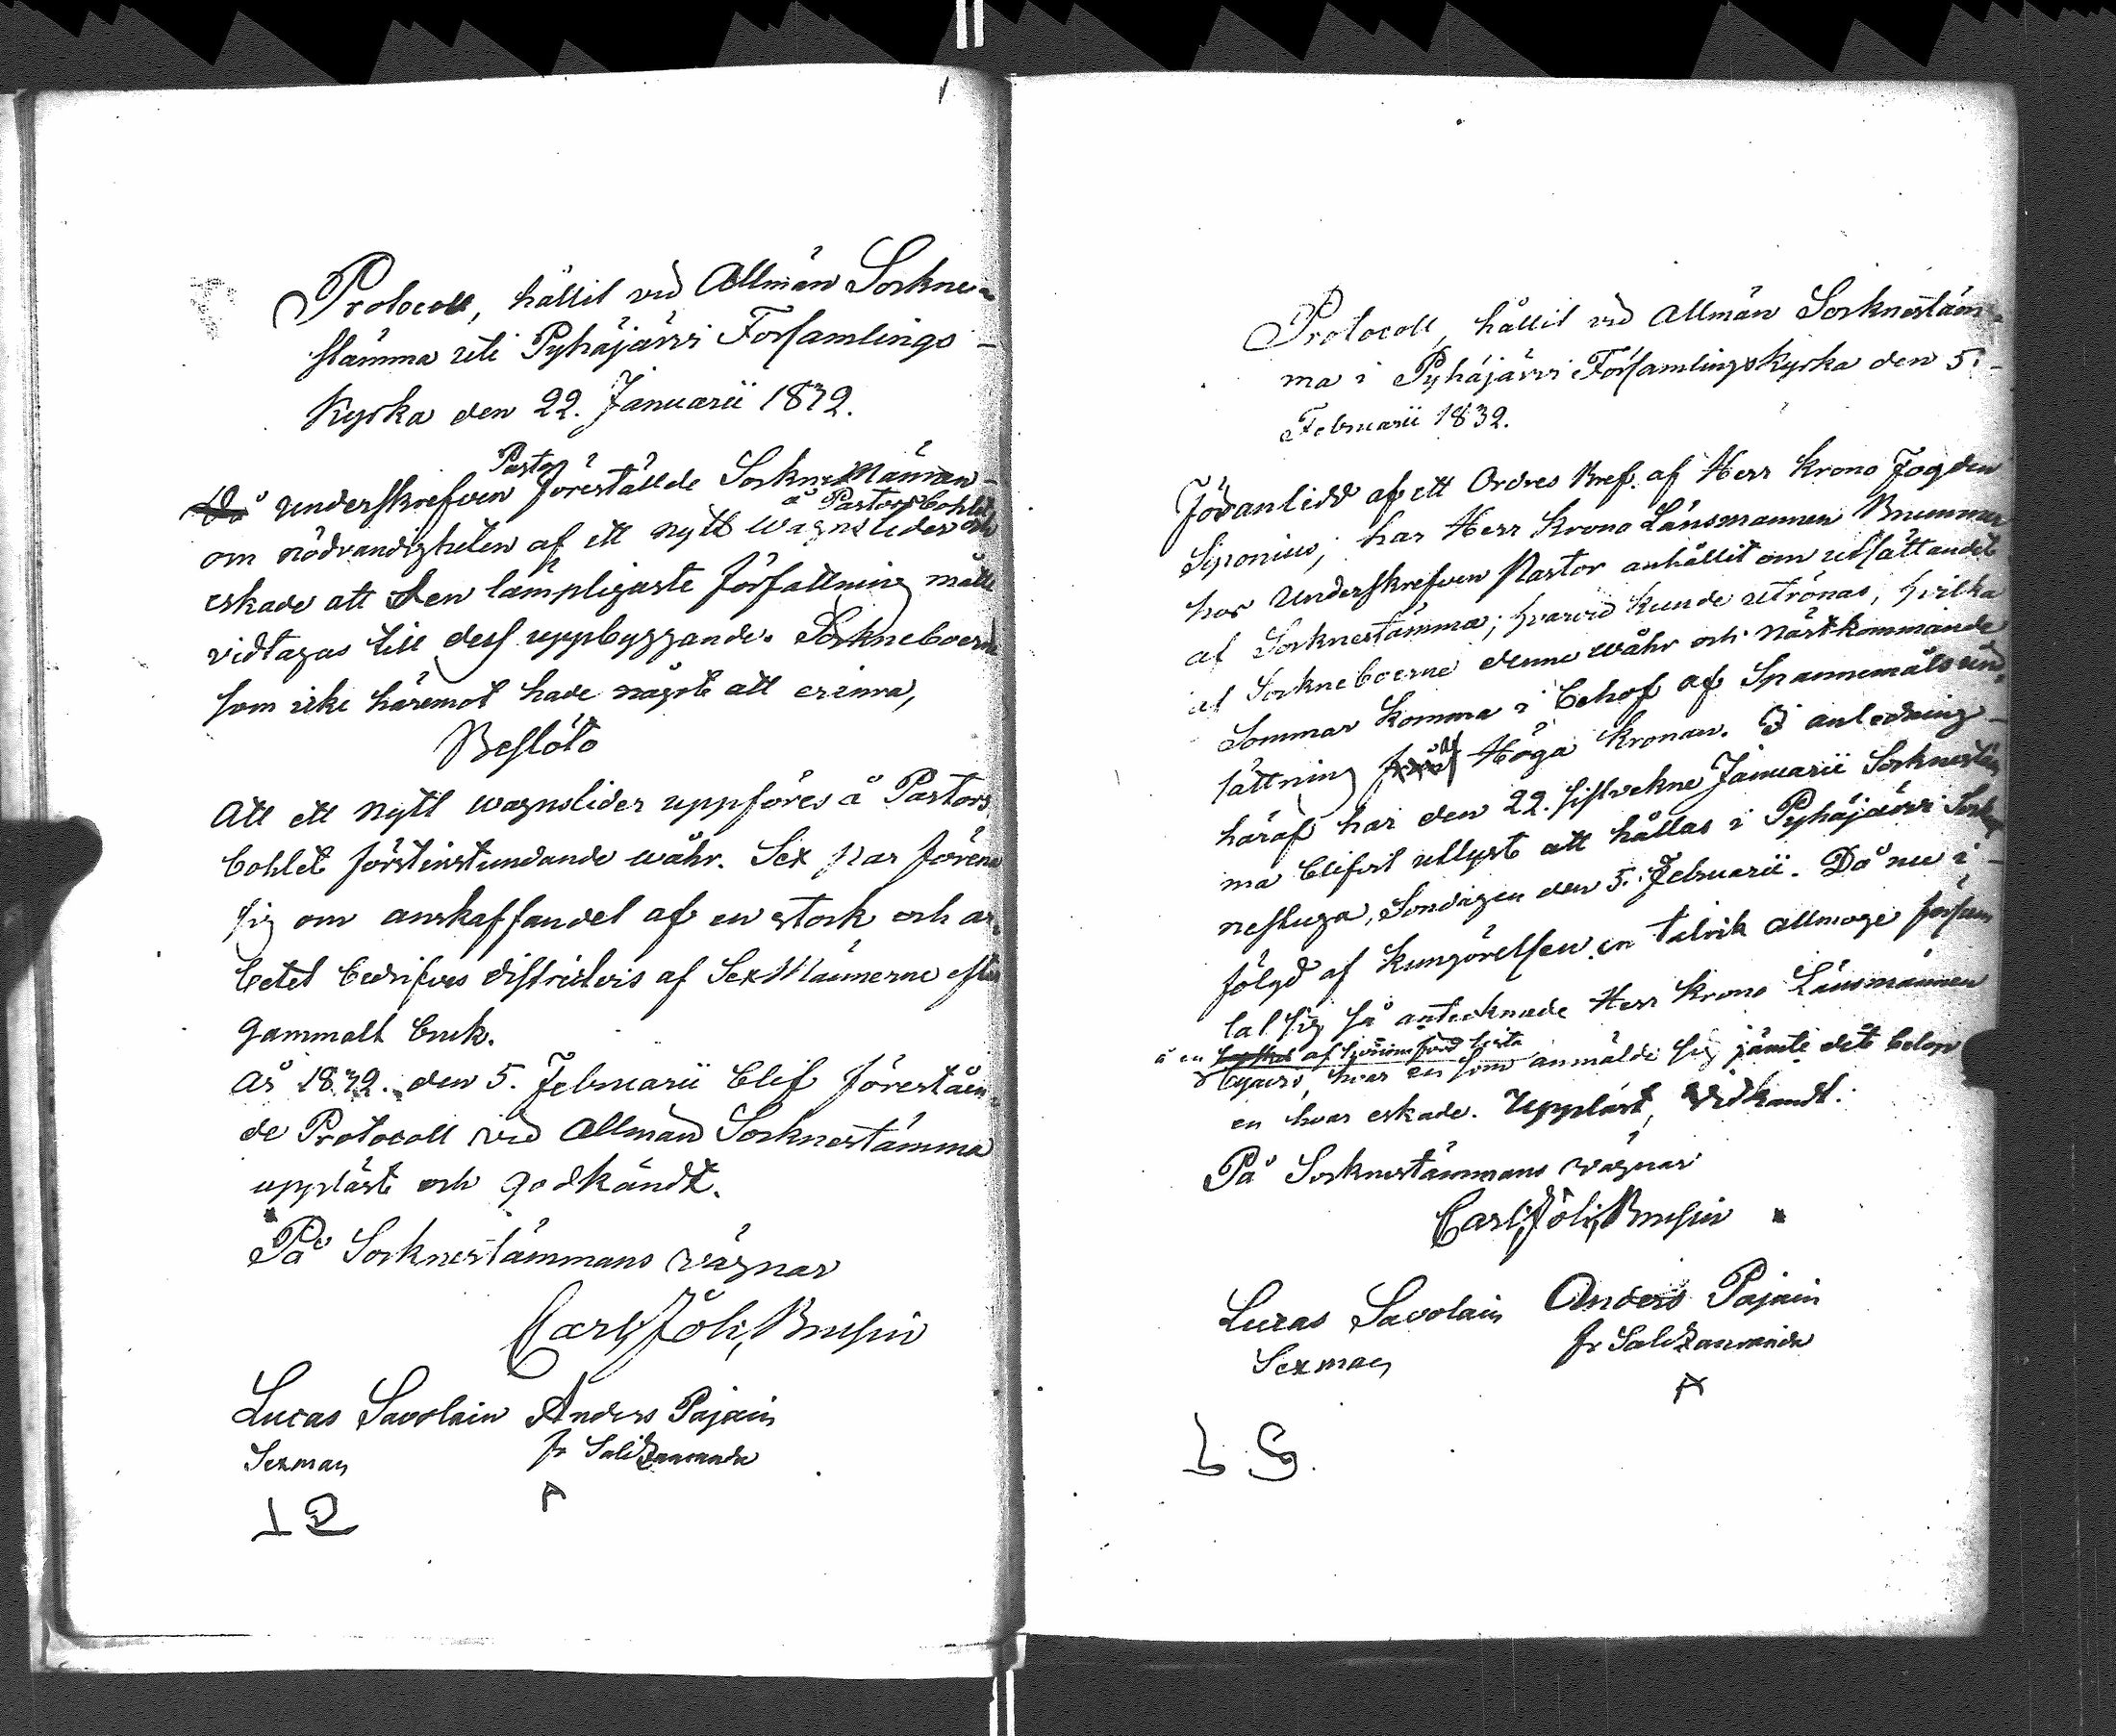 1
Protocoll, hållit vid Allmän Sockne-
stämma uti Pyhäjärvi Församlings
Kyrka den 22. Januarii 1832.
Pastor
Då Underskrefven förestälde Sockne Männen
å Pastors bohlet
om nödvändigheten af ett nytt Wagnslider och
eskade att den lämpligaste författning måtte
vidtagas till dess uppbyggande. Sockneboerne
som icke häremot hade någott att erinra,
Beslöto
Att ett nytt wagnslider uppföres å Pastors
bohlet förstinstundande wåhr. Sex par förena
sig om anskaffandet af en stock och ar-
betet bedrifves districtvis af SexMännerne efter
gammalt bruk.
År 1832. den 5. Februarii blef förestaen-
de Protocoll vid Allmän Socknestämma
uppläst och godkändt.
På Socknestämmans vägnar
Carl Joh. Brusin
Lucas Savolain Anders Pajain
Sexman fr Salitzanmäki
A
Protocoll, hållit vid Allmän Socknestäm-
ma i Pyhäjärvi Församlings Kyrka den 5.
Februarii 1832.
Föranlidd af ett Ordres Bref af Herr Krono Fogden
Siponius, har Herr Krono Länsmannen Brummer
hos Underskrefven Pastor anhållit om utsättandet
af Socknestämma; hvarvid kunde utrönas, hvilka
af Sockneboerne denne wåhr och nästkommande
Sommar komma i behof af Spannemåls und-
sättning af Höga Kronan. I anledning
häraf har den 22. sistvekne Januarii Socknestäm
ma blifvit utlyst att hållas i Pyhäjärvi Sock
nestuga, Söndagen den 5. Februarii. Då nu i
fölgd af Kungörelsen en talrik allmoge församlat
sig så antecknade Herr Krono Länsmannen
å en af förd lista
hvar en som anmälde sig jämte det belop
en hvar eskade. Uppläst, Vidkändt.
På Socknestämmans vägnar
Carl Joh. Brusin
Lucas Savolain Anders Pajain
Sexman fr Salitzanmäki
A